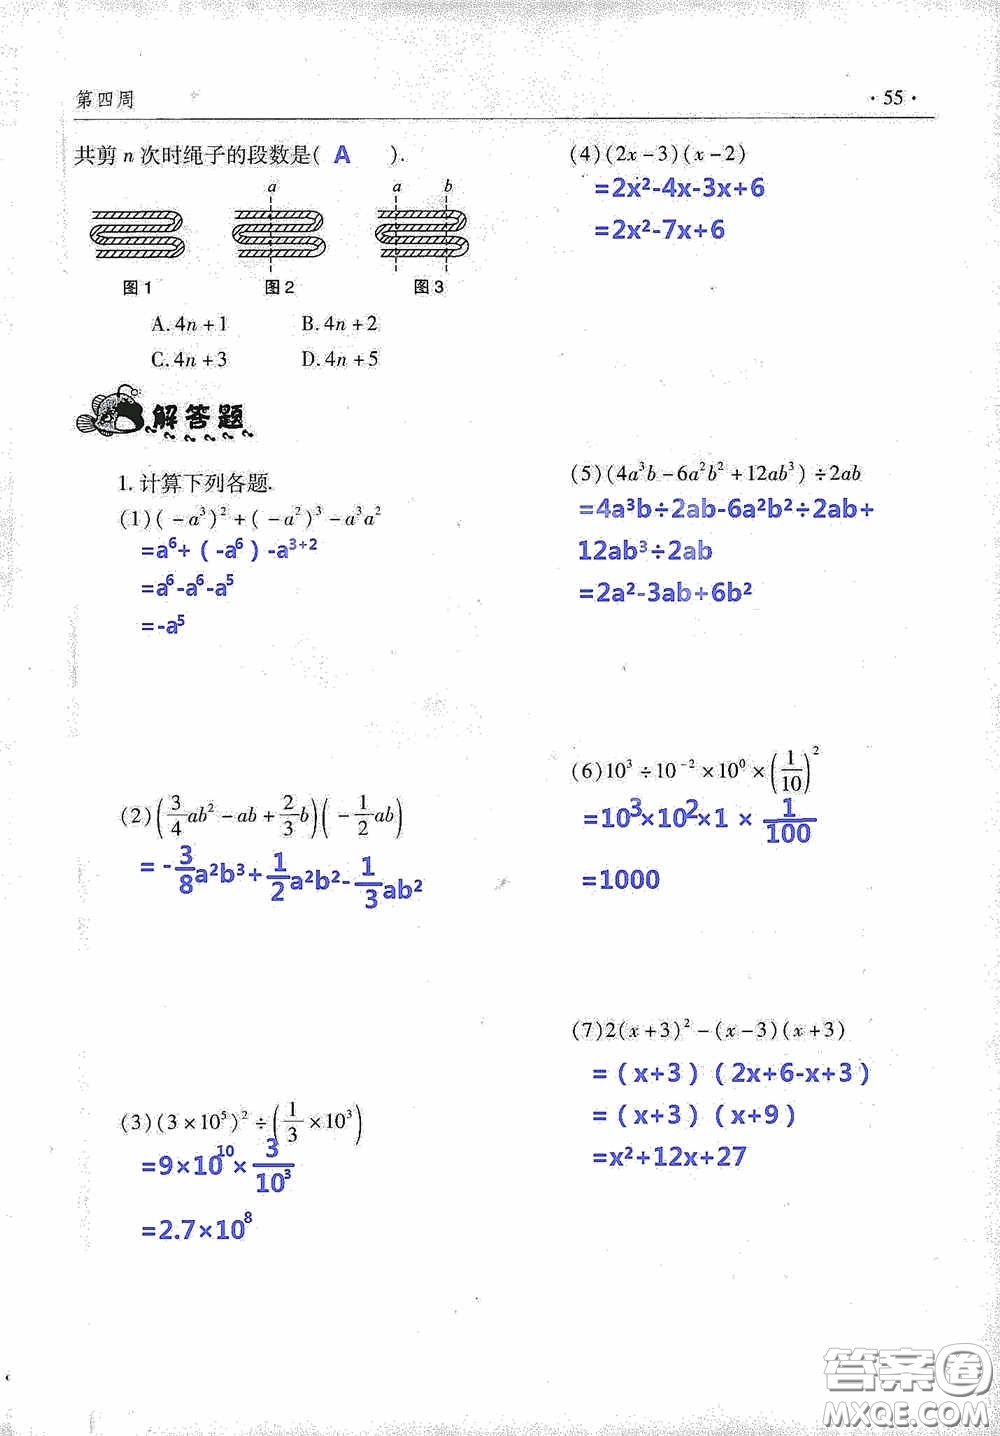 第四周
· 55 ·
共剪 n 次时绳子的段数是( A ).
a a b
图1 图2 图3
A. 4n+1 B. 4n+2
C. 4n+3 D. 4n+5
解答题
1. 计算下列各题.
(1)(-a³)²+(-a²)³-a³a²
=a⁶+(-a⁶)-a³⁺²
=a⁶-a⁶-a⁵
=-a⁵
(2)(3/4ab²-ab+2/3b)(-1/2ab)
=-3/8a²b³+1/2a²b²-1/3ab²
(3)(3×10⁵)²÷(1/3×10³)
=9×10¹⁰×3/10³
=2.7×10⁸
(4)(2x-3)(x-2)
=2x²-4x-3x+6
=2x²-7x+6
(5)(4a³b-6a²b²+12ab³)÷2ab
=4a³b÷2ab-6a²b²÷2ab+
12ab³÷2ab
=2a²-3ab+6b²
(6)10³÷10⁻²×10⁰×(1/10)²
=10³×10²×1×1/100
=1000
(7)2(x+3)²-(x-3)(x+3)
=(x+3)(2x+6-x+3)
=(x+3)(x+9)
=x²+12x+27
答案圈
MXQE.COM